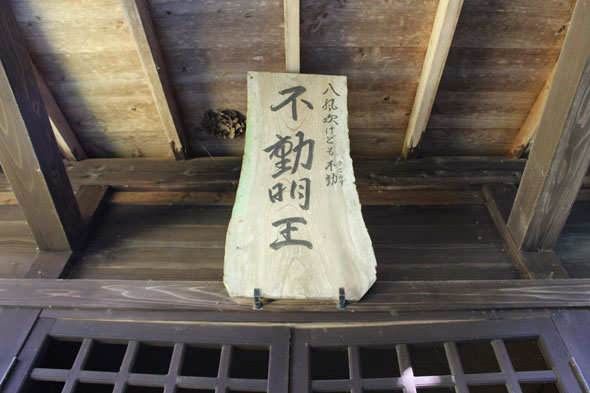 八風吹けども不動
不動明王